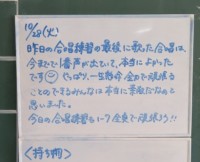 10/28(火)
昨日の合唱練習の最後に歌った合唱は、
今までで1番声が出ていて、本当によかった
です やっぱり一生懸命全力で頑張る
ことのできるみんなは本当に素敵だなと
思いました。
今日の合唱練習も 全員で頑張ろう!!
〈持ち物〉